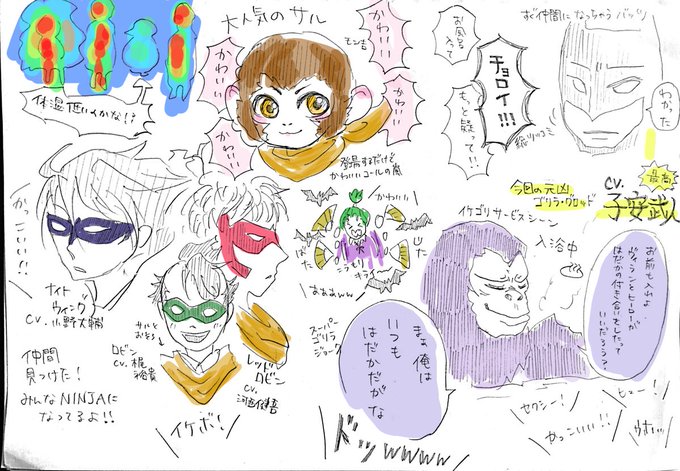 大人気のサル
モン吉
かわいい
かわいい
かわいい
かわいい
かわいい
登場するだけで
かわいいコールの嵐
体温低いくかな!?
お風呂
入って
チョロイ!!!
もっと疑って!!
総ツッコミ
すぐ仲間になっちゃうバッツ
わかった
最高
cv.
子安武人
今回の元凶
ゴリラ・グロッド
イケゴリサービスシーン
入浴中
お前も入れよ
ヴィランとヒーローが
はだかの付き合いをしたって
いいだろう?
まぁ俺は
いつも
はだかだがな
ドッwwww
セクシー!
ヒュー!
かっこいい!!
ウホッ
かわいい
あああww
スーパー
ゴリラ
ジョーク
かっこいい!!
ナイト
ウィング
cv.小野大輔
サルと
おそろ
ロビン
cv.梶
裕貴
レッド
ロビン
cv.
河西健吾
イケボ!
仲間
見つけた!
みんなNINJAに
なってるよ!!